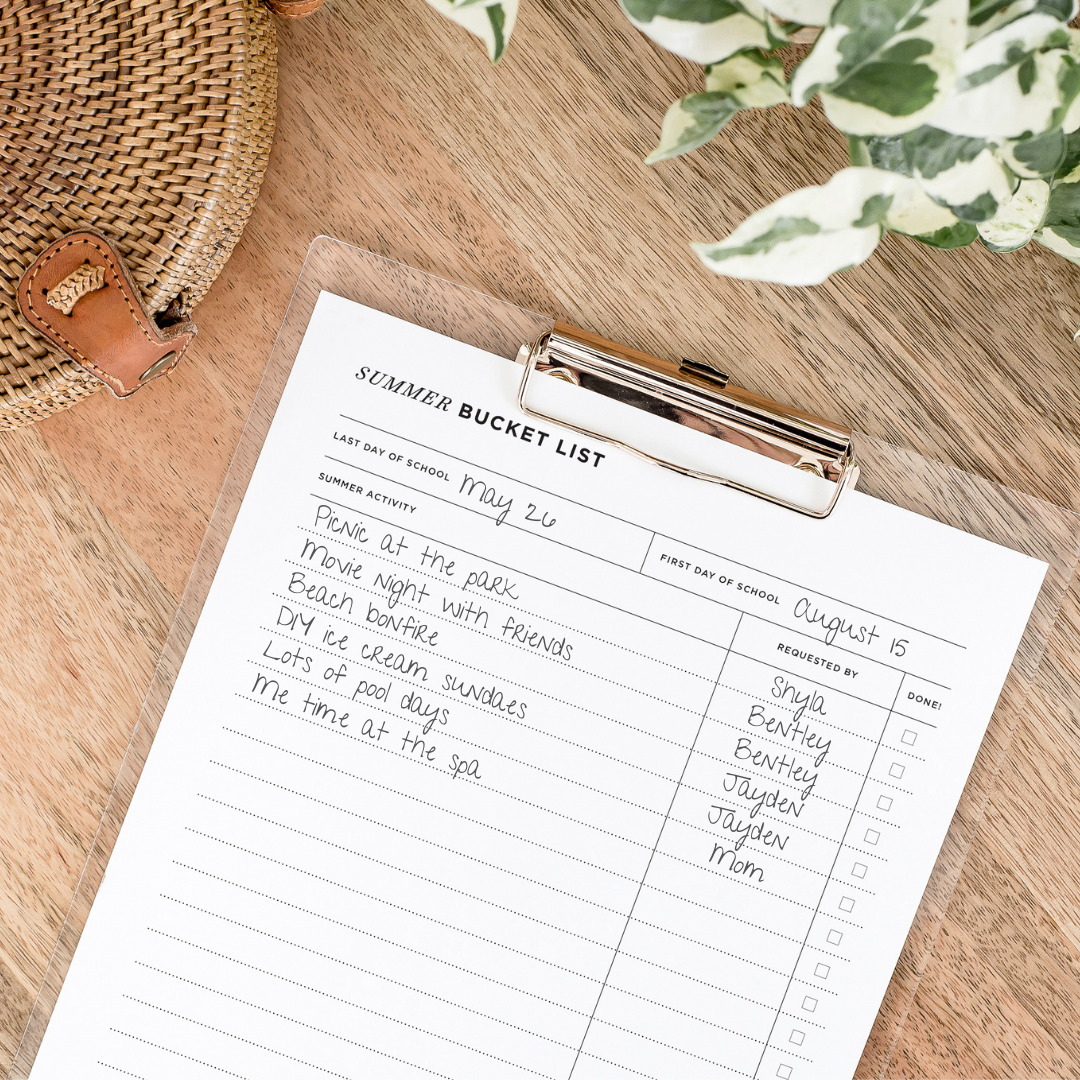 SUMMER BUCKET LIST
LAST DAY OF SCHOOL May 26 FIRST DAY OF SCHOOL August 15
SUMMER ACTIVITY REQUESTED BY DONE!
Picnic at the park Shyla
Movie night with friends Bentley
Beach bonfire Bentley
DIY ice cream sundaes Jayden
Lots of pool days Jayden
Me time at the spa Mom